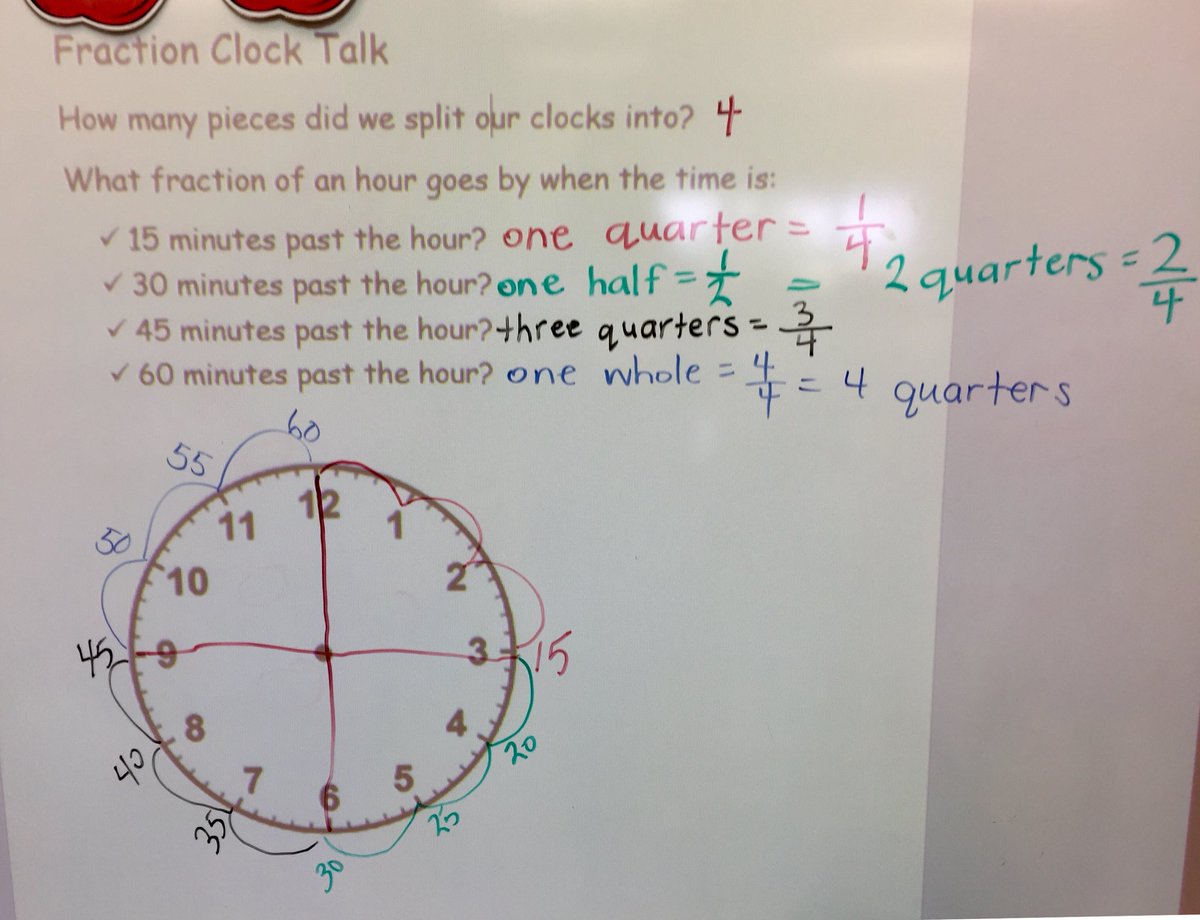 Fraction Clock Talk
How many pieces did we split our clocks into? 4
What fraction of an hour goes by when the time is:
✓ 15 minutes past the hour? one quarter = 1/4
✓ 30 minutes past the hour? one half = 1/2 = 2 quarters = 2/4
✓ 45 minutes past the hour? three quarters = 3/4
✓ 60 minutes past the hour? one whole = 4/4 = 4 quarters
60
55
12
11 1
50
10 2
45 9 3 15
8 4
40 20
7 5
6
35 25
30